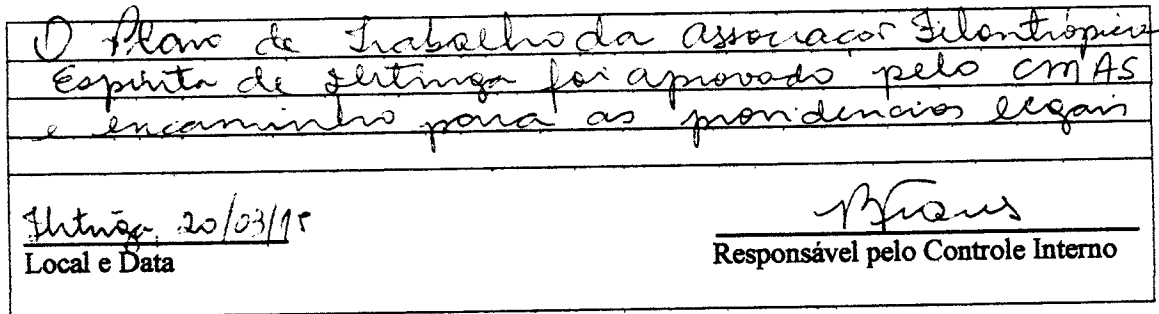 O Plano de Trabalho da Associaçaõ Filontrópica
Espírita de Ibitinga foi aprovado pelo CMAS
e encaminho para as providencias legais
Ibitinga, 20/03/15
Local e Data
Responsável pelo Controle Interno